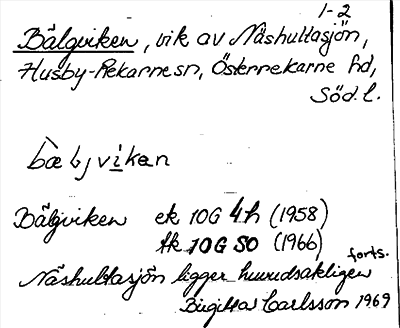 1-2
Bälgviken, vik av Näshultasjön,
Husby-Rekarne sn, Österrekarne hd,
Söd. l.
bæljvikən
Bälgviken ek 10G 4h (1958)
tk 10G SO (1966)
forts.
Näshultasjön ligger huvudsakligen
Birgitta Carlsson 1969